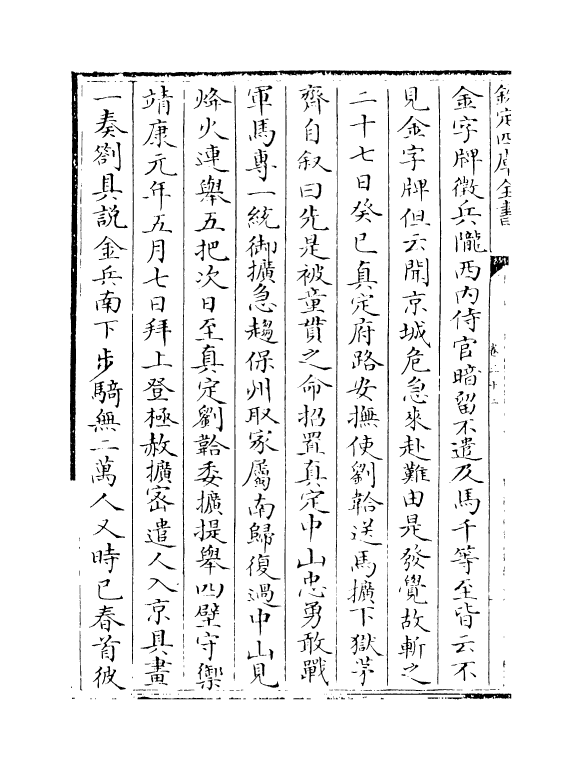 欽定四庫全書
金字牌徵兵隴西内侍官暗留不遣及馬千等至皆云不
見金字牌但云聞京城危急來赴難由是發覺故斬之
二十七日癸巳真定府路安撫使劉韐送馬擴下獄茅
齊自叙曰先是被童貫之命招置真定中山忠勇敢戰
軍馬專一統御擴急趨保州取家屬南歸復過中山見
烽火連舉五把次日至真定劉韐委擴提舉四壁守禦
靖康元年五月七日拜上登極赦擴密遣人入京具畫
一奏劄具說金兵南下步騎無二萬人又時已春首彼